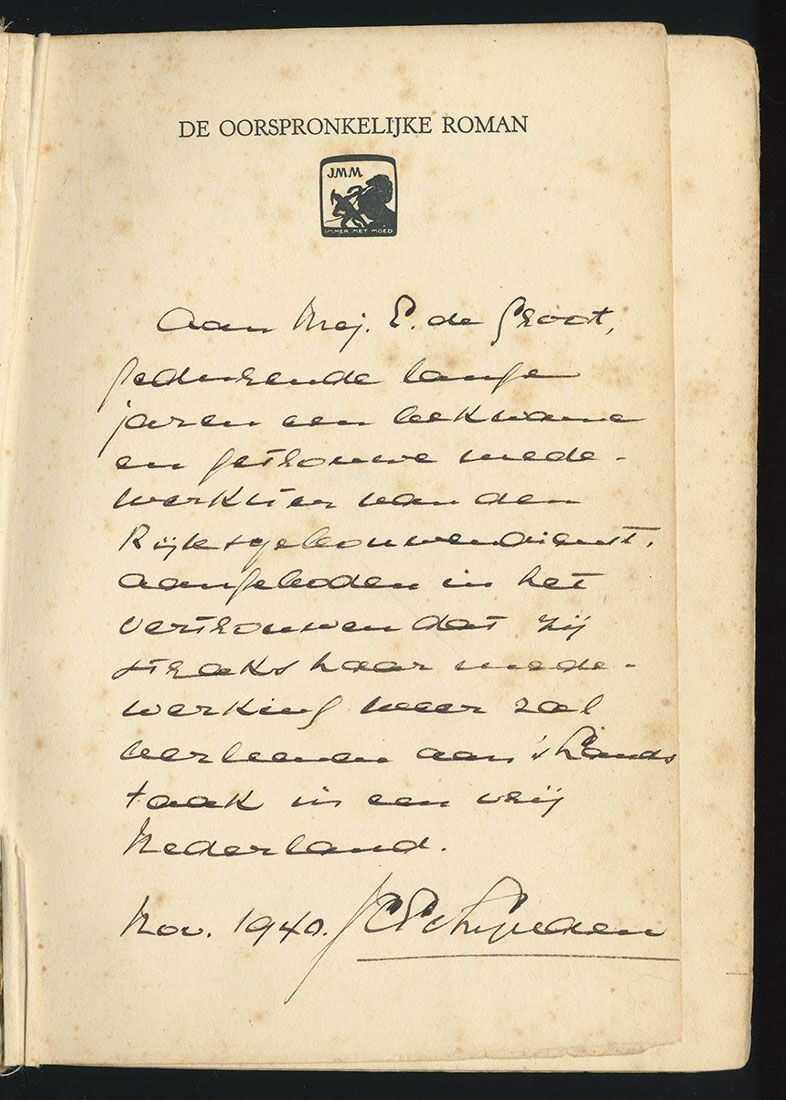 DE OORSPRONKELIJKE ROMAN
J.M.M.
IMMER MET MOED
Aan Mej. E. de Groot,
gedurende lange
jaren een bekwame
en getrouwe mede-
werkster van den
Rijksgebouwendienst,
aangeboden in het
vertrouwen dat zij
straks haar mede-
werking weer zal
verleenen aan 's Lands
taak in een vrij
Nederland.
Nov. 1940.